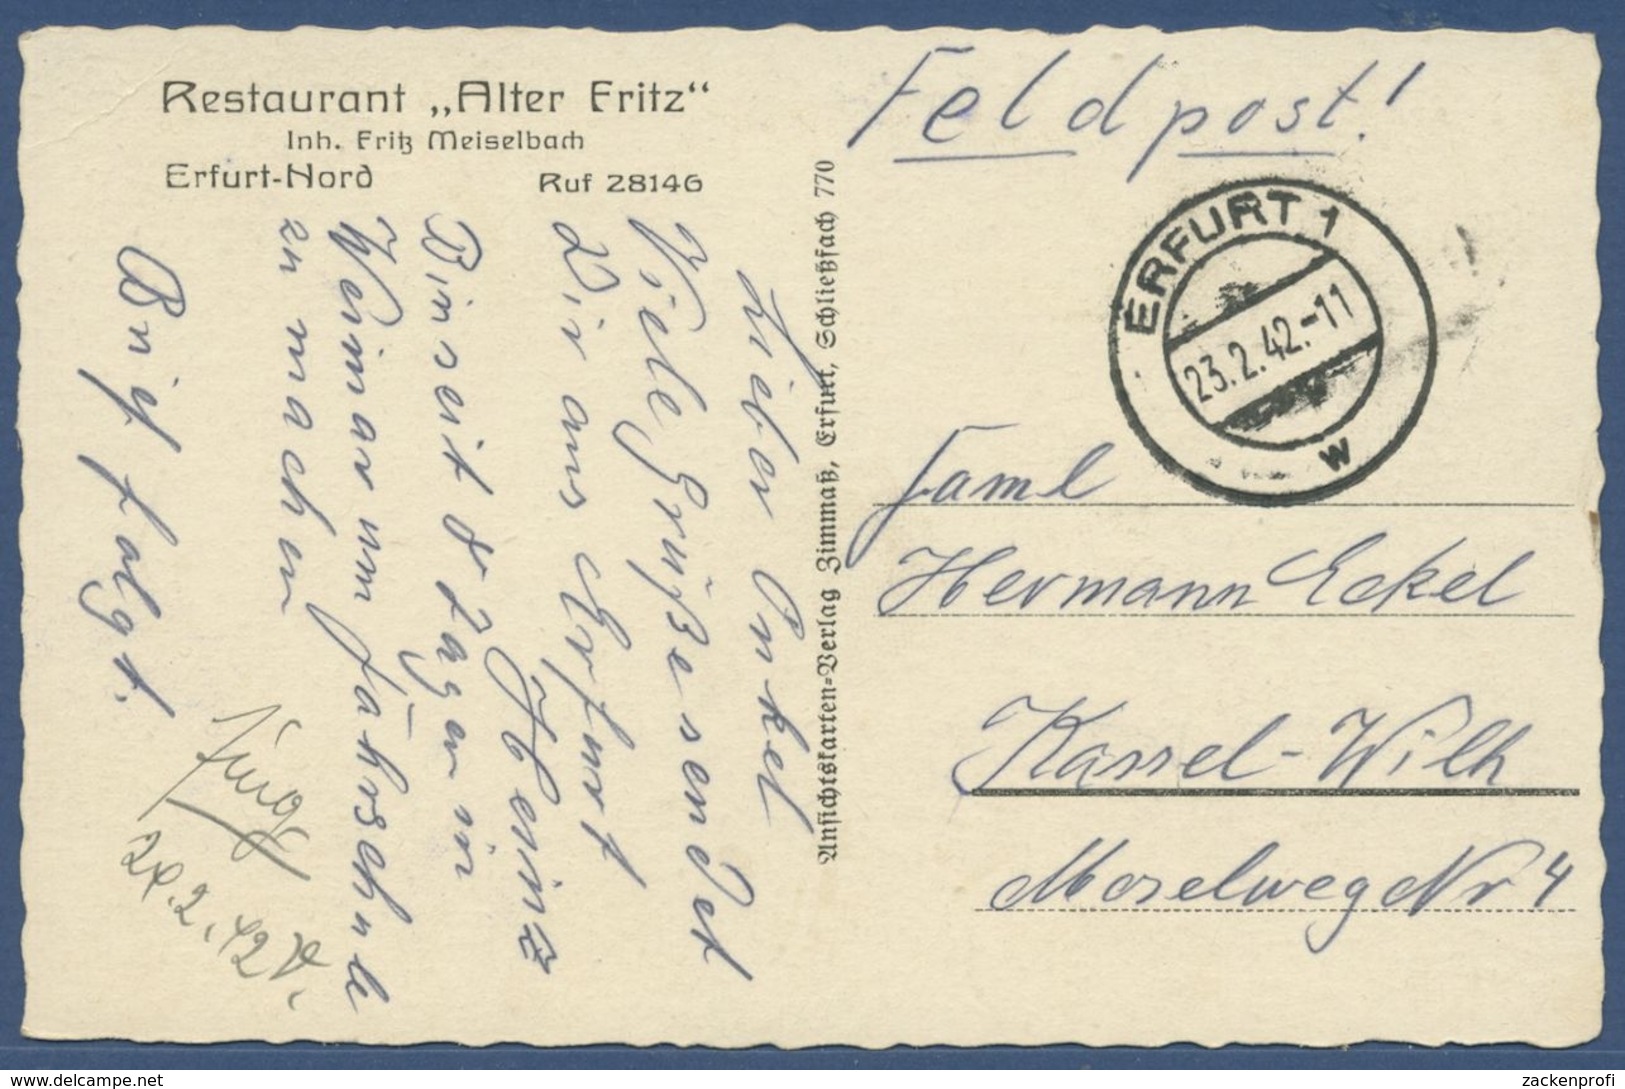 Restaurant „Alter Fritz“
Inh. Fritz Meiselbach
Erfurt-Nord Ruf 28146
Lieber Onkel
Viele Grüße sendet
Dir aus Erfurt
Heinz
Bin seit 8 Tagen in
Weimar um Fahrschule
zu machen
Brief folgt.
24.2.42
Ansichtskarten-Verlag Zimmaß, Erfurt, Schließfach 770
Feldpost!
ERFURT 1
23.2.42.-11
w
Faml
Hermann Eckel
Kassel-Wilh
Moselweg Nr 4
zackenprofi
www.delcampe.net